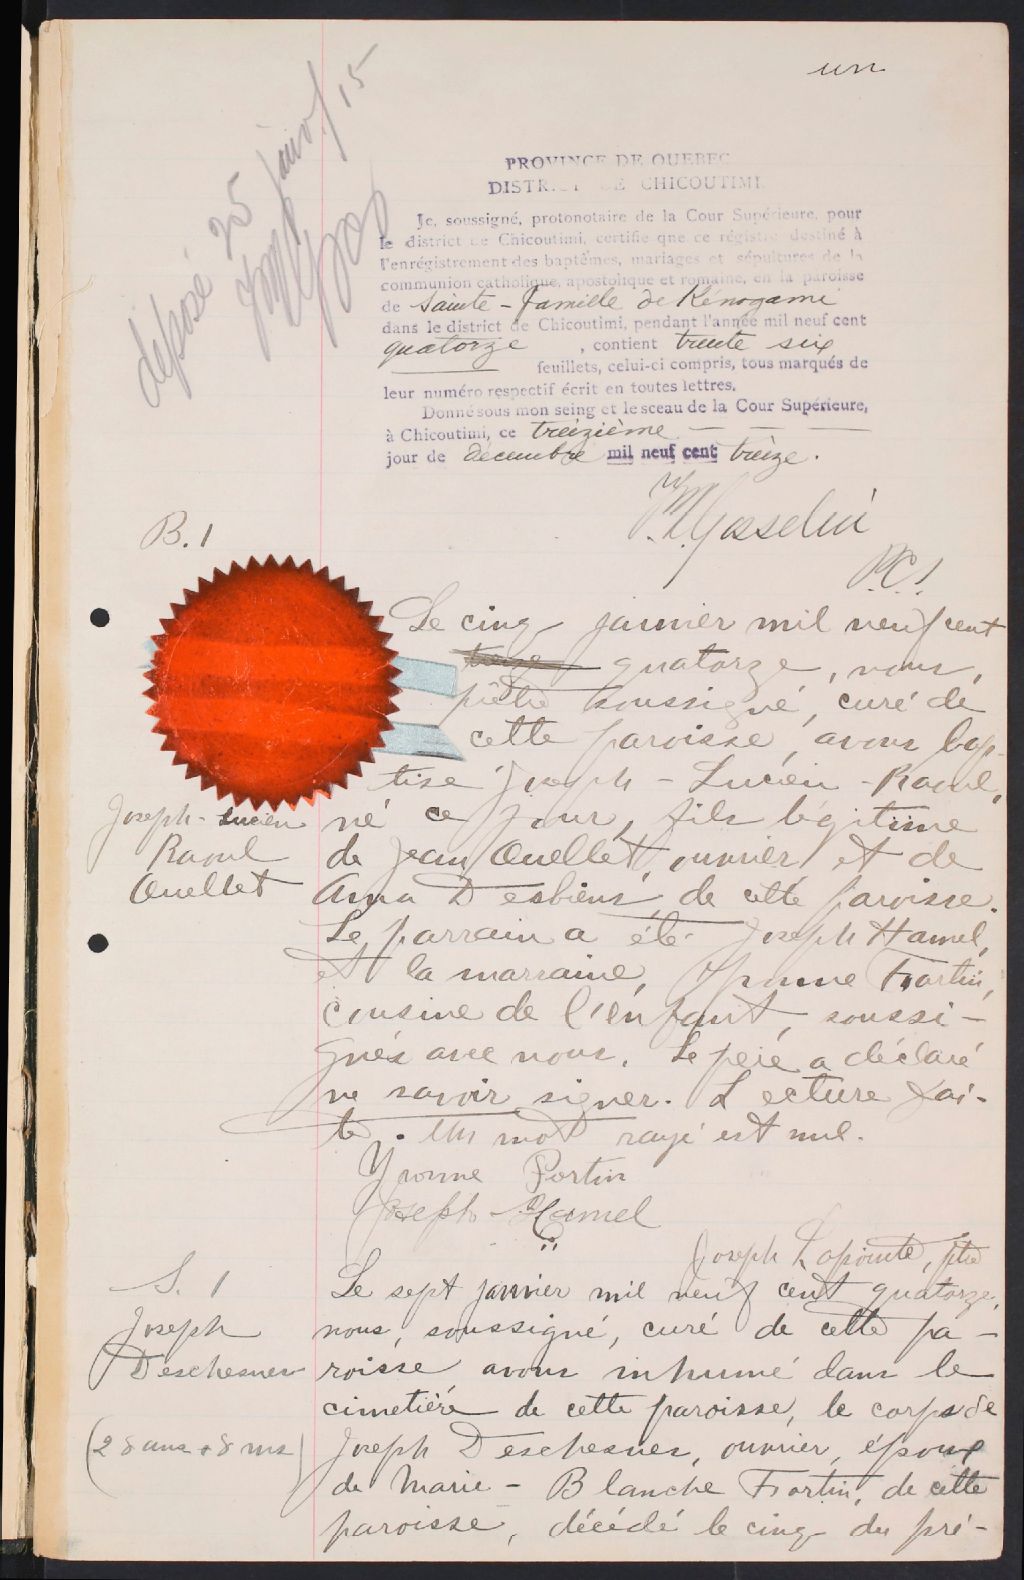 un
déposé 25 janv/15
PROVINCE DE QUEBEC
DISTRICT DE CHICOUTIMI.
Je, soussigné, protonotaire de la Cour Supérieure, pour
le district de Chicoutimi, certifie que ce régistre destiné à
l'enrégistrement des baptêmes, mariages et sépultures de la
communion catholique, apostolique et romaine, en la paroisse
de Sainte-Famille de Kénogami
dans le district de Chicoutimi, pendant l'année mil neuf cent
quatorze, contient trente six
feuillets, celui-ci compris, tous marqués de
leur numéro respectif écrit en toutes lettres.
Donné sous mon seing et le sceau de la Cour Supérieure,
à Chicoutimi, ce treizième — — —
jour de décembre mil neuf cent treize.
Gosselin
P.C.S.
B. 1
Joseph-Lucien
Raoul
Ouellet
Le cinq janvier mil neuf cent
treize quatorze, nous,
prêtre soussigné, curé de
cette paroisse, avons bap-
tisé Joseph-Lucien-Raoul,
né ce jour, fils légitime
de Jean Ouellet, ouvrier et de
Anna Desbiens de cette paroisse.
Le parrain a été Joseph Hamel,
et la marraine, Yvonne Fortin,
cousine de l'enfant, soussi-
gnés avec nous. Le père a déclaré
ne savoir signer. Lecture fai-
te. Un mot rayé est nul.
Yvonne Fortin
Joseph Hamel
Joseph Lapointe, ptre
S. 1
Joseph
Deschesnes
(28 ans + 8 ms)
Le sept janvier mil neuf cent quatorze,
nous, soussigné, curé de cette pa-
roisse avons inhumé dans le
cimetière de cette paroisse, le corps de
Joseph Deschesnes, ouvrier, époux
de Marie-Blanche Fortin, de cette
paroisse, décédé le cinq du pré-